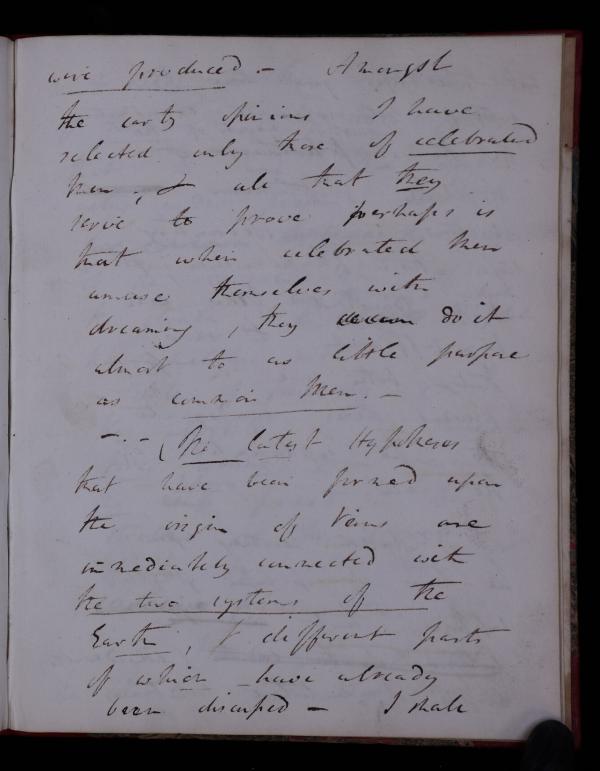 were produced - Amongst
the early opinions I have
selected only those of celebrated
Men, & all that they
serve to prove perhaps is
that when celebrated Men
amuse themselves with
dreaming, they do it
almost to as little purpose
as common Men. -
-.- (The latest Hypotheses
that have been formed upon
the origin of Veins are
immediately connected with
the two systems of the
Earth, & different parts
of which have already
been discussed - I shall